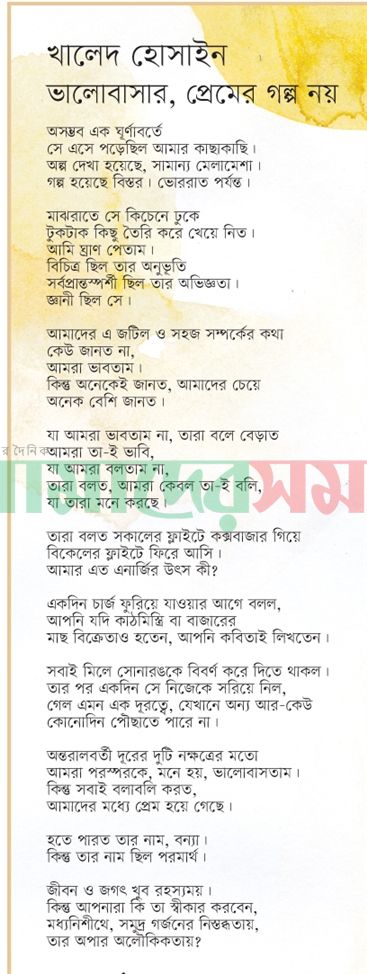 খালেদ হোসাইন
ভালোবাসার, প্রেমের গল্প নয়
অসম্ভব এক ঘূর্ণাবর্তে
সে এসে পড়েছিল আমার কাছাকাছি।
অল্প দেখা হয়েছে, সামান্য মেলামেশা।
গল্প হয়েছে বিস্তর। ভোররাত পর্যন্ত।
মাঝরাতে সে কিচেনে ঢুকে
টুকটাক কিছু তৈরি করে খেয়ে নিত।
আমি ঘ্রাণ পেতাম।
বিচিত্র ছিল তার অনুভূতি
সর্বপ্রান্তস্পর্শী ছিল তার অভিজ্ঞতা।
জ্ঞানী ছিল সে।
আমাদের এ জটিল ও সহজ সম্পর্কের কথা
কেউ জানত না,
আমরা ভাবতাম।
কিন্তু অনেকেই জানত, আমাদের চেয়ে
অনেক বেশি জানত।
যা আমরা ভাবতাম না, তারা বলে বেড়াত
র দৈনিক
আমরা তা-ই ভাবি,
যা আমরা বলতাম না,
তারা বলত, আমরা কেবল তা-ই বলি,
যা তারা মনে করছে।
আমাদেরসম
তারা বলত সকালের ফ্লাইটে কক্সবাজার গিয়ে
বিকেলের ফ্লাইটে ফিরে আসি।
আমার এত এনার্জির উৎস কী?
একদিন চার্জ ফুরিয়ে যাওয়ার আগে বলল,
আপনি যদি কাঠমিস্ত্রি বা বাজারের
মাছ বিক্রেতাও হতেন, আপনি কবিতাই লিখতেন।
সবাই মিলে সোনারঙকে বিবর্ণ করে দিতে থাকল।
তার পর একদিন সে নিজেকে সরিয়ে নিল,
গেল এমন এক দূরত্বে, যেখানে অন্য আর-কেউ
কোনোদিন পৌছাতে পারে না।
অন্তরালবর্তী দূরের দুটি নক্ষত্রের মতো
আমরা পরস্পরকে, মনে হয়, ভালোবাসতাম।
কিন্তু সবাই বলাবলি করত,
আমাদের মধ্যে প্রেম হয়ে গেছে।
হতে পারত তার নাম, বন্যা।
কিন্তু তার নাম ছিল পরমার্থ।
জীবন ও জগৎ খুব রহস্যময়।
কিন্তু আপনারা কি তা স্বীকার করবেন,
মধ্যনিশীথে, সমুদ্র গর্জনের নিস্তব্ধতায়,
তার অপার অলৌকিকতায়?